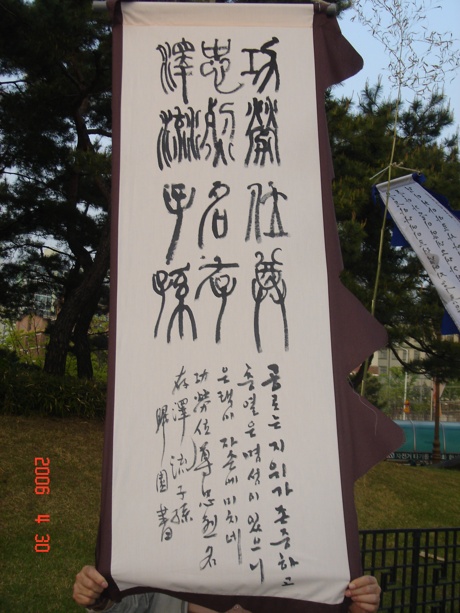 功勞位尊
忠烈名存
澤流子孫
공로는 지위가 존중하고
충열은 명성이 있으니
은택이 자손에 미치네
功勞位尊忠烈名
存澤流子孫
歸園書
2006 4 30